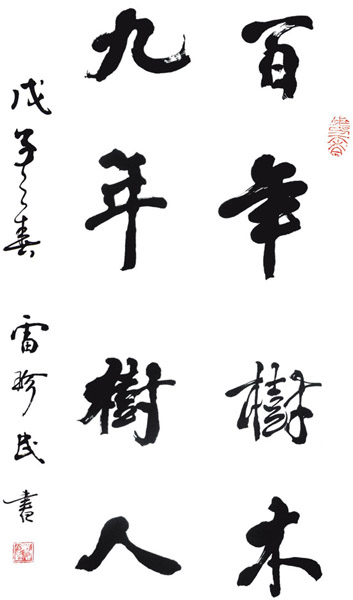 百年樹木
九年樹人
戊子之春 雷珍民書